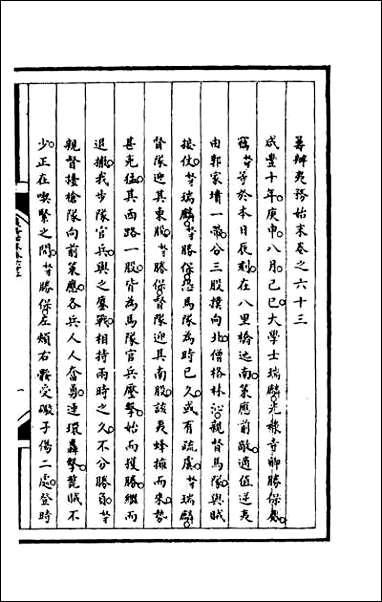 籌辦夷務始末卷之六十三
咸豐十年庚申八月己巳大學士瑞麟光祿寺卿勝保奏
竊等於本日辰刻在八里橋迤南策應前敵適值逆夷
由郭家墳一帶分三股撲向北僧格林沁親督馬隊與賊
接仗等瑞麟等勝保恐馬隊為時已久或有疏虞等瑞麟
督隊迎其東股等勝保督隊迎其南股該夷蜂擁而來勢
甚兇猛其西路一股皆為馬隊官兵壓擊始而獲勝繼而
退撤我步隊官兵與之鏖戰相持兩時之久不分勝負等
親督擡槍隊向前策應各兵人人奮勇連環轟擊斃賊不
少正在喫緊之間等勝保左頰右骽受礮子傷二處登時